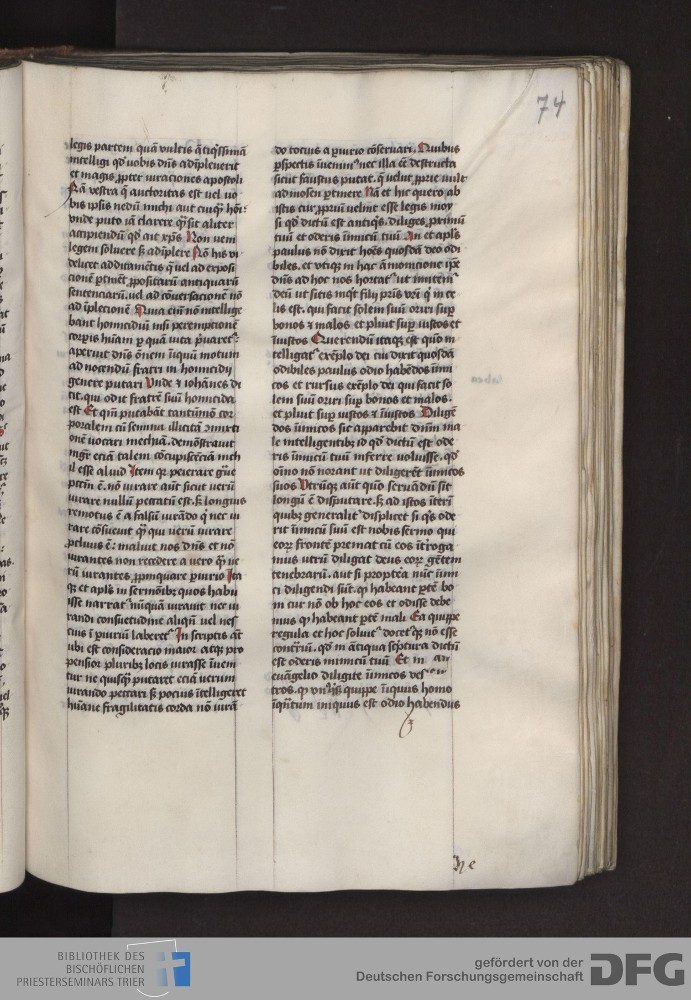 74
legis partem quā vultis ātiqͥssimā
intelligi qd̄ uobis dn̄s adīpleuerit
et magis ꝓpter iuraciones apostoli
Nā vestra q̄ auctoritas est vel uo
bis ipsis nedū michi aut cuiqͣ̄ hōi:
vnde puto iā clarere qͦ sit aliter
accipiendū qd̄ ait xp̄s Non veni
legem soluere sꝫ adīplere Nō his vi
delicet additamētis q̄ vel ad exposi
cionē ꝑtinēt ꝓpositarū antiquarū
sentenciarū. vel ad cōuersacionē nō
ad īplecionē Quia em̄ nō intellige
bant homicidiū nisi peremptionē
corꝑis hūani ꝑ quā uita pͥuaretᷣ
aperuit dn̄s ōnem īiquū motum
ad nocendū fratri in homicidij
genere putari Vnde ⁊ iohānes di
cit. qui odit fratrē suū homicida
est Et qm̄ putabāt tantūmō cor
poralem cū femina illicitā ꝯmixti
onē uocari mechiā. demōstrauit
mgr̄ eciā talem cōcupiscēciā nich
il esse aliud Item qꝫ peierare gͣue
pctm̄ ē. nō iurare aūt sicut verū
iurare nullū peccatū est. sꝫ longius
remotus ē a falsū iurādo qͥ nec iu
rare cōsueuit qͣ̄ qui verū iurare
ꝓcliuis ē: maluit nos dn̄s et nō
iurantes non recedere a vero qͣ̄ ve
rū iurantes ꝓpinquare ꝑiurio Ita
qꝫ et apl̄s in sermōibꝫ quos habu
isse narratᷣ nūquā iurauit nec iu
randi consuetudine aliqn̄ vel nes
cius ī ꝑiuriū laberetᷣ In scriptis aūt
ubi est consideracio maior atqꝫ pro
pensior pluribꝫ locis iurasse īueni
tur ne quisqͣ̄ putaret eciā uerum
iurando peccari sꝫ pocius ītelligeret
hūane fragilitatis corda nō iurā
do tocius a ꝑiurio cōseruari. Quibus
ꝑspectis īuenimᷣ nec illa eē destructa
sicut faustus putat. q̄ velut ꝓprie vult
ad moisen ꝑtinere Nā et hic quero ab
istis cur ꝓpriū velint esse legis moy
si qd̄ dictū est antiqͥs. diliges ꝓximū
tuū et oderis īimicū tuū An et apl̄s
paulus nō dixit hoēs quosdā deo odi
biles. et vtiqꝫ in hac āmonicione ip̄e
dn̄s ad hoc nos hortatᷣ ut imitem̄
deū ut sitis inqͥt filij pr̄is vr̄i qͥ in ce
lis est. qui facit solem suū oriri suꝑ
bonos ⁊ malos et pluit suꝑ iustos et
īiustos Querendū itaqꝫ est quō in
telligatᷣ exēplo dei cui dixit quosdā
odibiles paulus odio habēdos īimi
cos et rursus exēplo dei qui facit so
lem suū oriri suꝑ bonos et malos.
et pluit suꝑ iustos ⁊ īiustos Diligē
dos īimicos sic apparebit dn̄m ma
le intelligentibꝫ id qd̄ dictū est ode
ris īimicū tuū inferre voluisse. qd̄
oīno nō norant ut diligerēt īimicos
suos Vtrūqꝫ aūt quō seruādū sit
longū ē disputare. sꝫ ad istos īterī
quibꝫ generalitᷣ displicet si qͥs ode
rit īimicū suū est nobis sermo qui
eoꝝ frontē premat cū eos īt̄roga
mus utrū diligat deus eoꝝ gētem
tenebrarū. aut si ꝓpt̄ea nūc īimi
ci diligendi sūt. qꝫ habeant ꝑtē bo
ni cur nō ob hoc eos et odisse debe
mus qꝫ habeant ꝑtē mali Ea quippe
regula et hoc soluitᷣ docetᷣqꝫ nō esse
contͣriū. qd̄ in ātiqua sc̄ptura dictū
est oderis inimicū tuū Et in
euāgelio diligite īimicos ves
tros. qꝫ vnᷣqͥsqꝫ quippe īiquus homo
īqͣntum iniquus est odio habendus
BIBLIOTHEK DES
BISCHÖFLICHEN
PRIESTERSEMINARS TRIER
gefördert von der
Deutschen Forschungsgemeinschaft
DFG